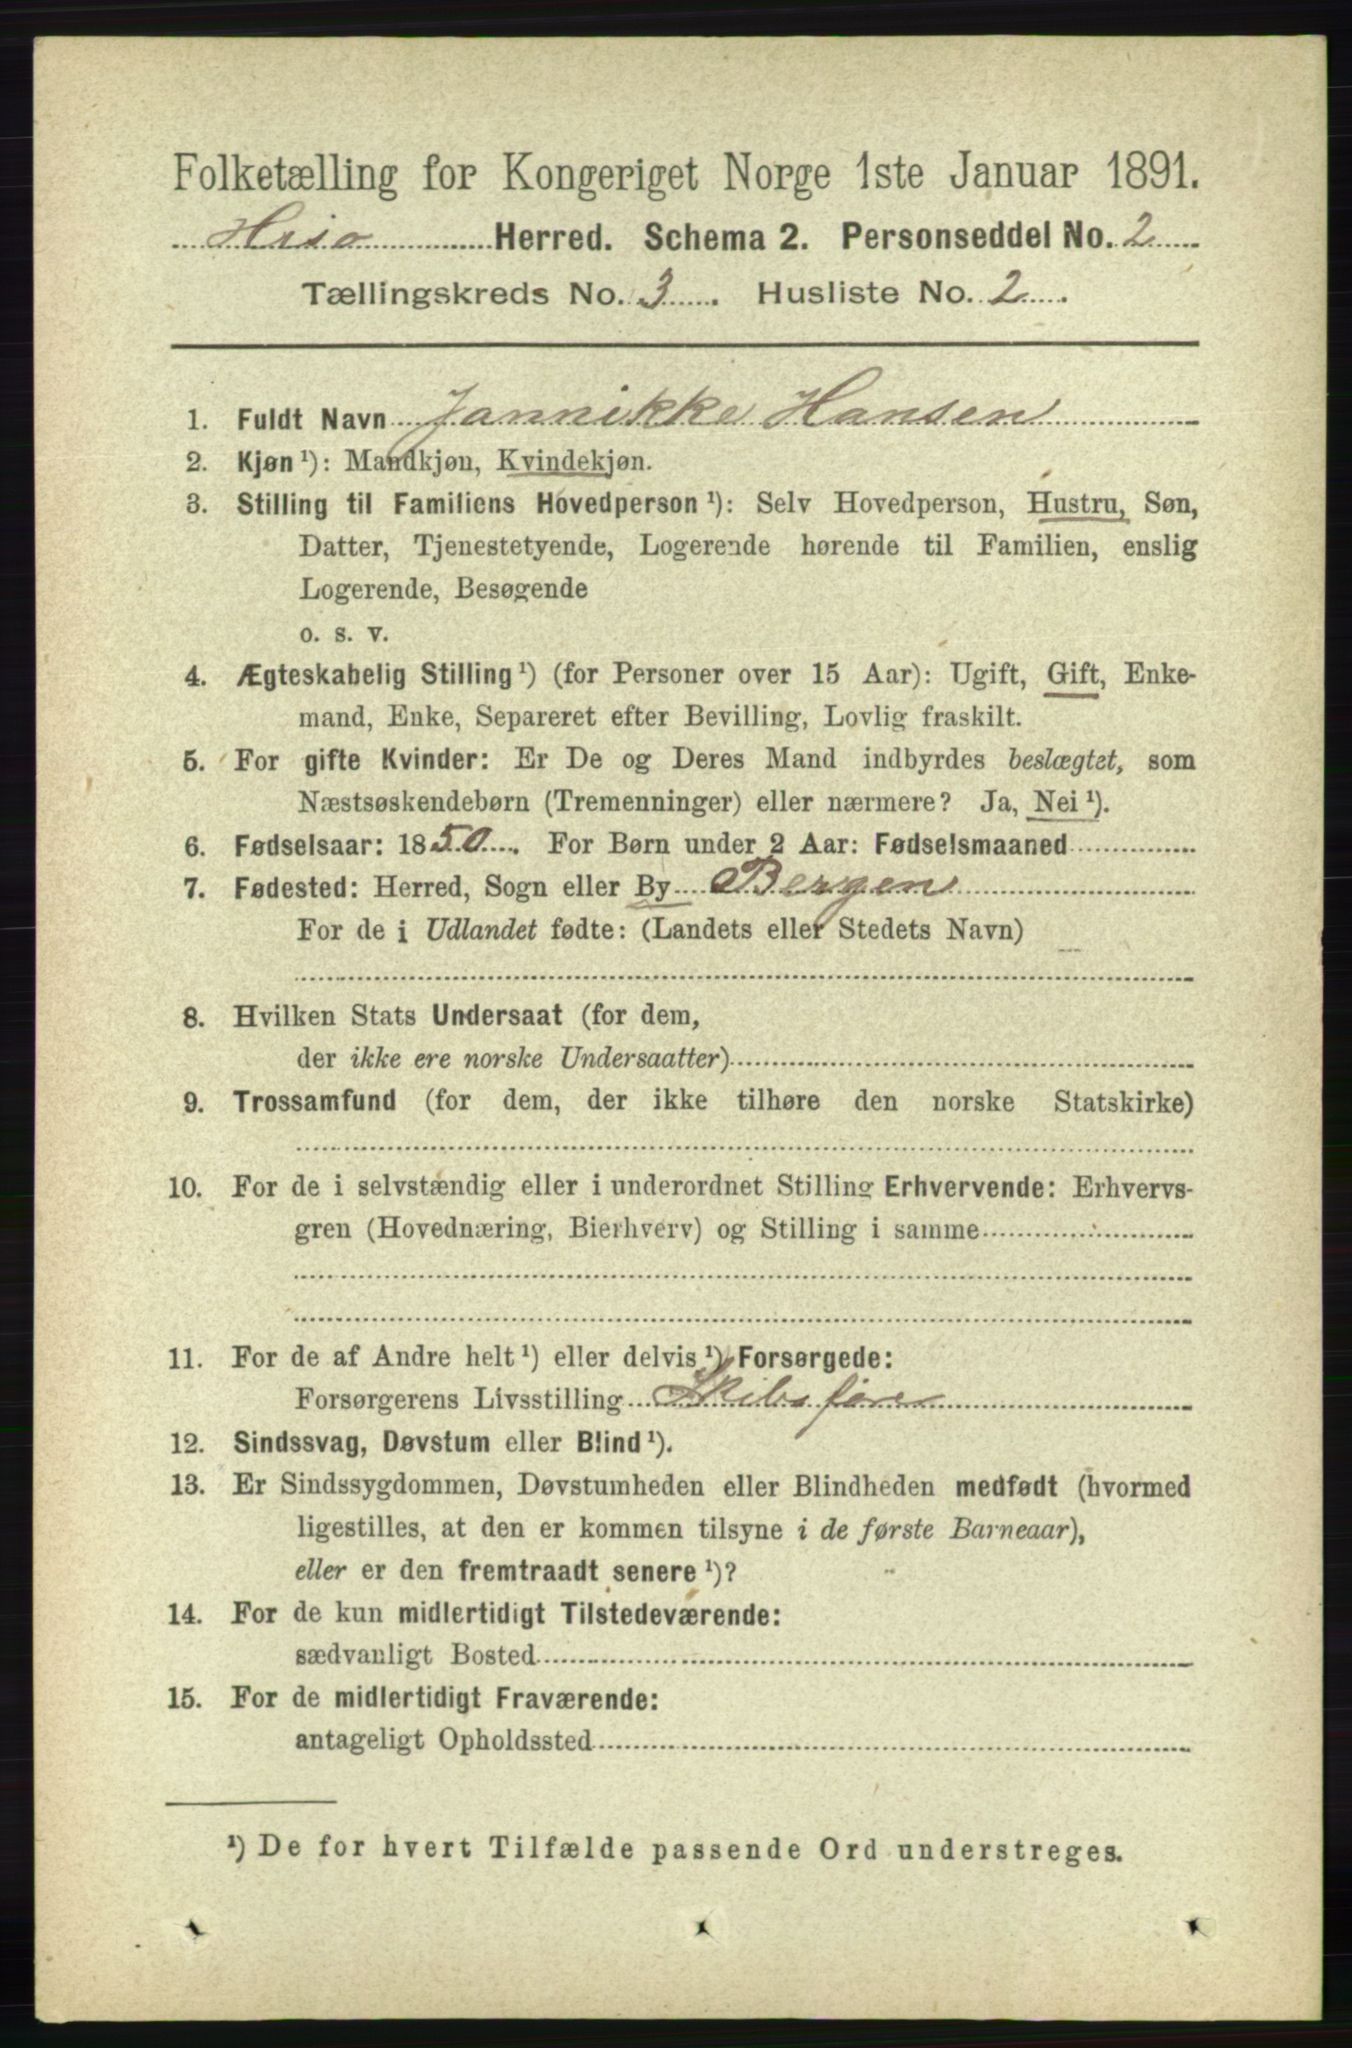 Folketælling for Kongeriget Norge 1ste Januar 1891.
Hisø Herred. Schema 2. Personseddel No. 2
Tællingskreds No. 3. Husliste No. 2.
1. Fuldt Navn Jannikke Hansen
2. Kjøn ¹): Mandkjøn, Kvindekjøn.
3. Stilling til Familiens Hovedperson ¹): Selv Hovedperson, Hustru, Søn,
Datter, Tjenestetyende, Logerende hørende til Familien, enslig
Logerende, Besøgende
o. s. v.
4. Ægteskabelig Stilling ¹) (for Personer over 15 Aar): Ugift, Gift, Enke-
mand, Enke, Separeret efter Bevilling, Lovlig fraskilt.
5. For gifte Kvinder: Er De og Deres Mand indbyrdes beslægtet, som
Næstsøskendebørn (Tremenninger) eller nærmere? Ja, Nei ¹).
6. Fødselsaar: 1850. For Børn under 2 Aar: Fødselsmaaned
7. Fødested: Herred, Sogn eller By Bergen
For de i Udlandet fødte: (Landets eller Stedets Navn)
8. Hvilken Stats Undersaat (for dem,
der ikke ere norske Undersaatter)
9. Trossamfund (for dem, der ikke tilhøre den norske Statskirke)
10. For de i selvstændig eller i underordnet Stilling Erhvervende: Erhvervs-
gren (Hovednæring, Bierhverv) og Stilling i samme
11. For de af Andre helt ¹) eller delvis ¹) Forsørgede:
Forsørgerens Livsstilling Skibsfører
12. Sindssvag, Døvstum eller Blind ¹).
13. Er Sindssygdommen, Døvstumheden eller Blindheden medfødt (hvormed
ligestilles, at den er kommen tilsyne i de første Barneaar),
eller er den fremtraadt senere ¹)?
14. For de kun midlertidigt Tilstedeværende:
sædvanligt Bosted
15. For de midlertidigt Fraværende:
antageligt Opholdssted
¹) De for hvert Tilfælde passende Ord understreges.